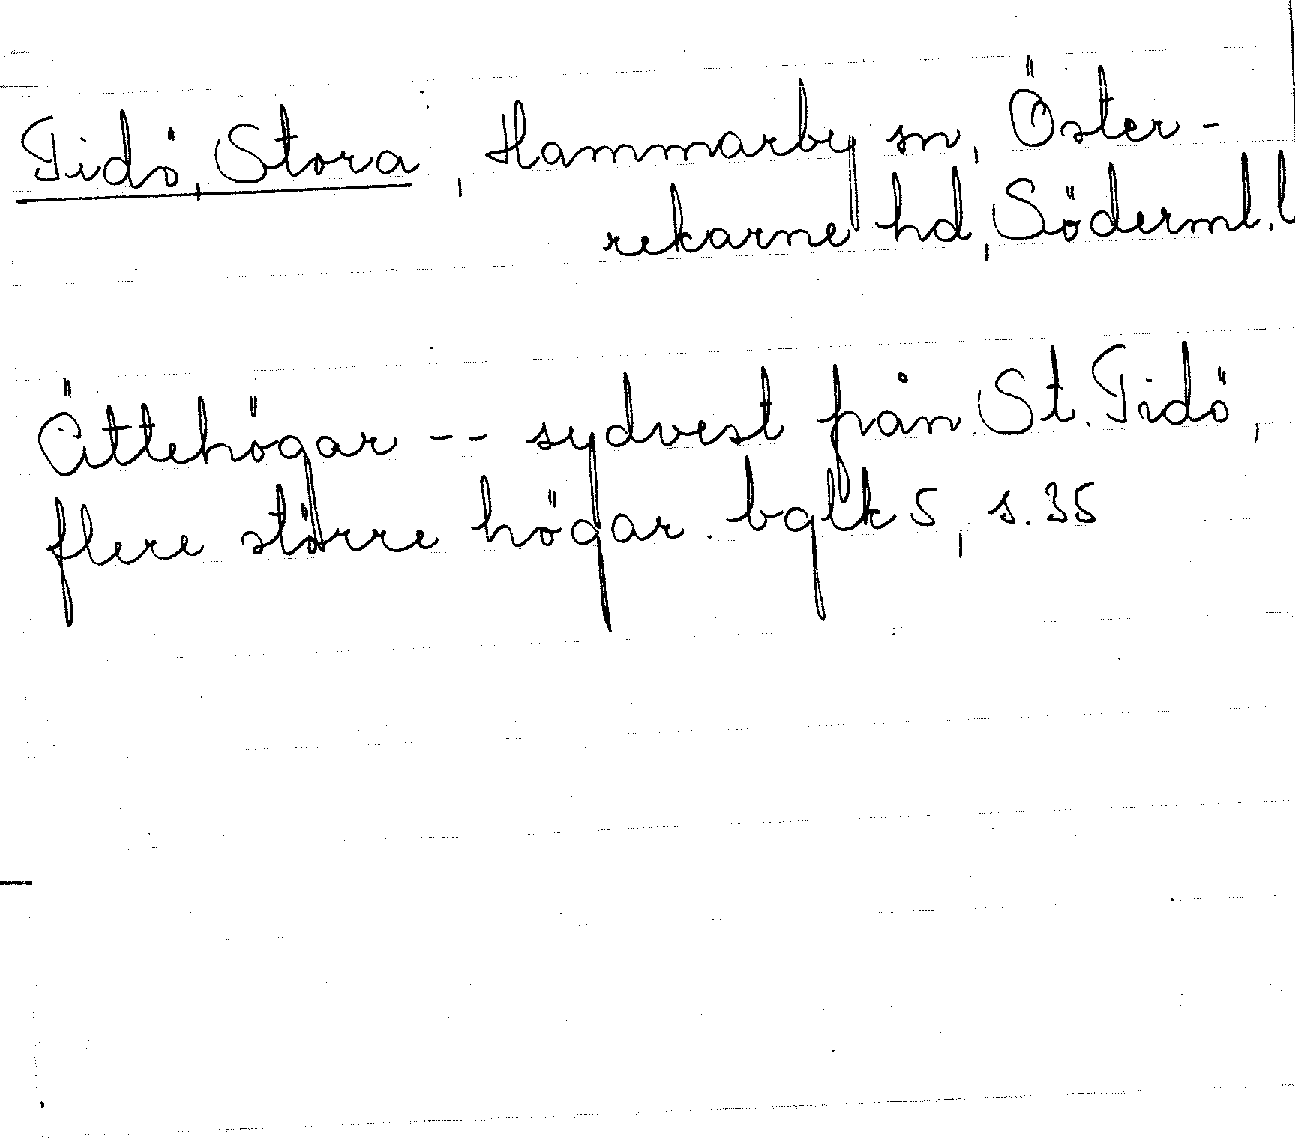 Tidö, Stora, Hammarby sn, Öster-
rekarne hd, Söderml. l
Ättehögar -- sydvest från St. Tidö,
flere större högar. bglk 5, s. 35